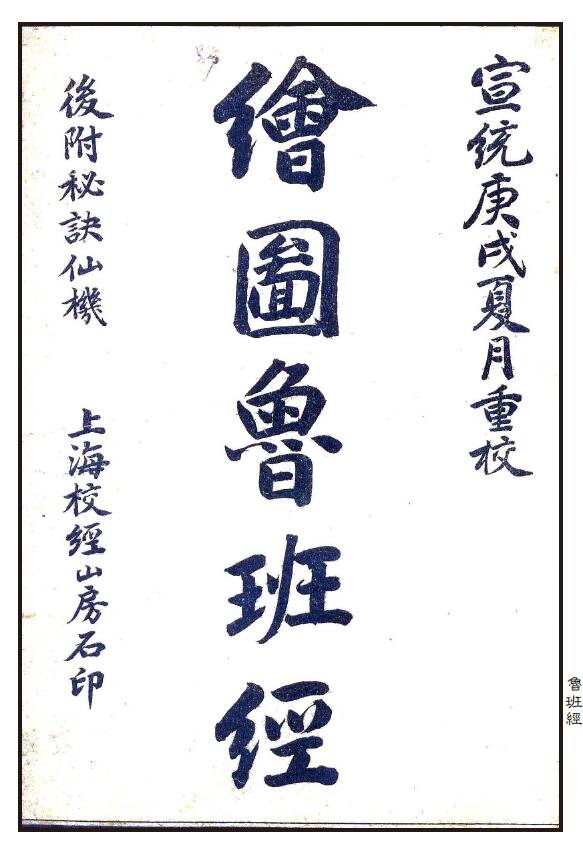 宣統庚戌夏月重校
繪圖魯班經
後附秘訣仙機 上海校經山房石印
魯班經